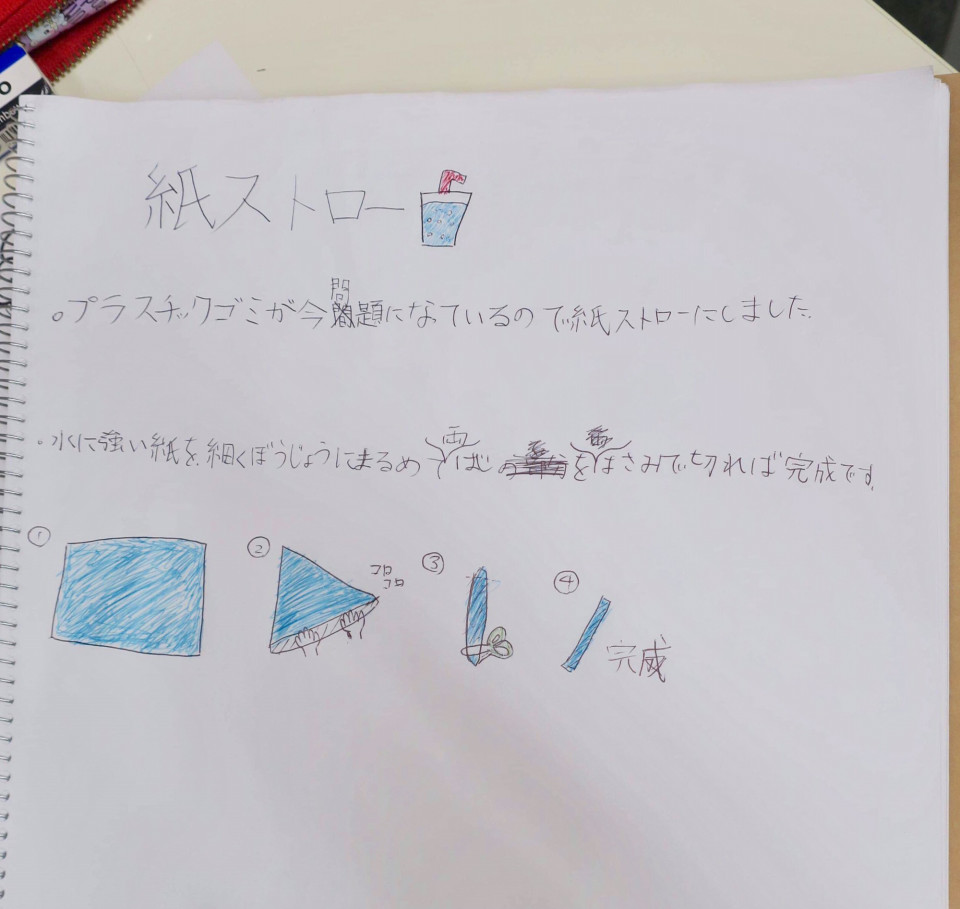 紙ストロー
。プラスチックゴミが今問題になっているので紙ストローにしました。
・水に強い紙を細くぼうじょうにまるめて両はじをはさみで切れば完成です。
① ② コロコロ ③ ④ 完成